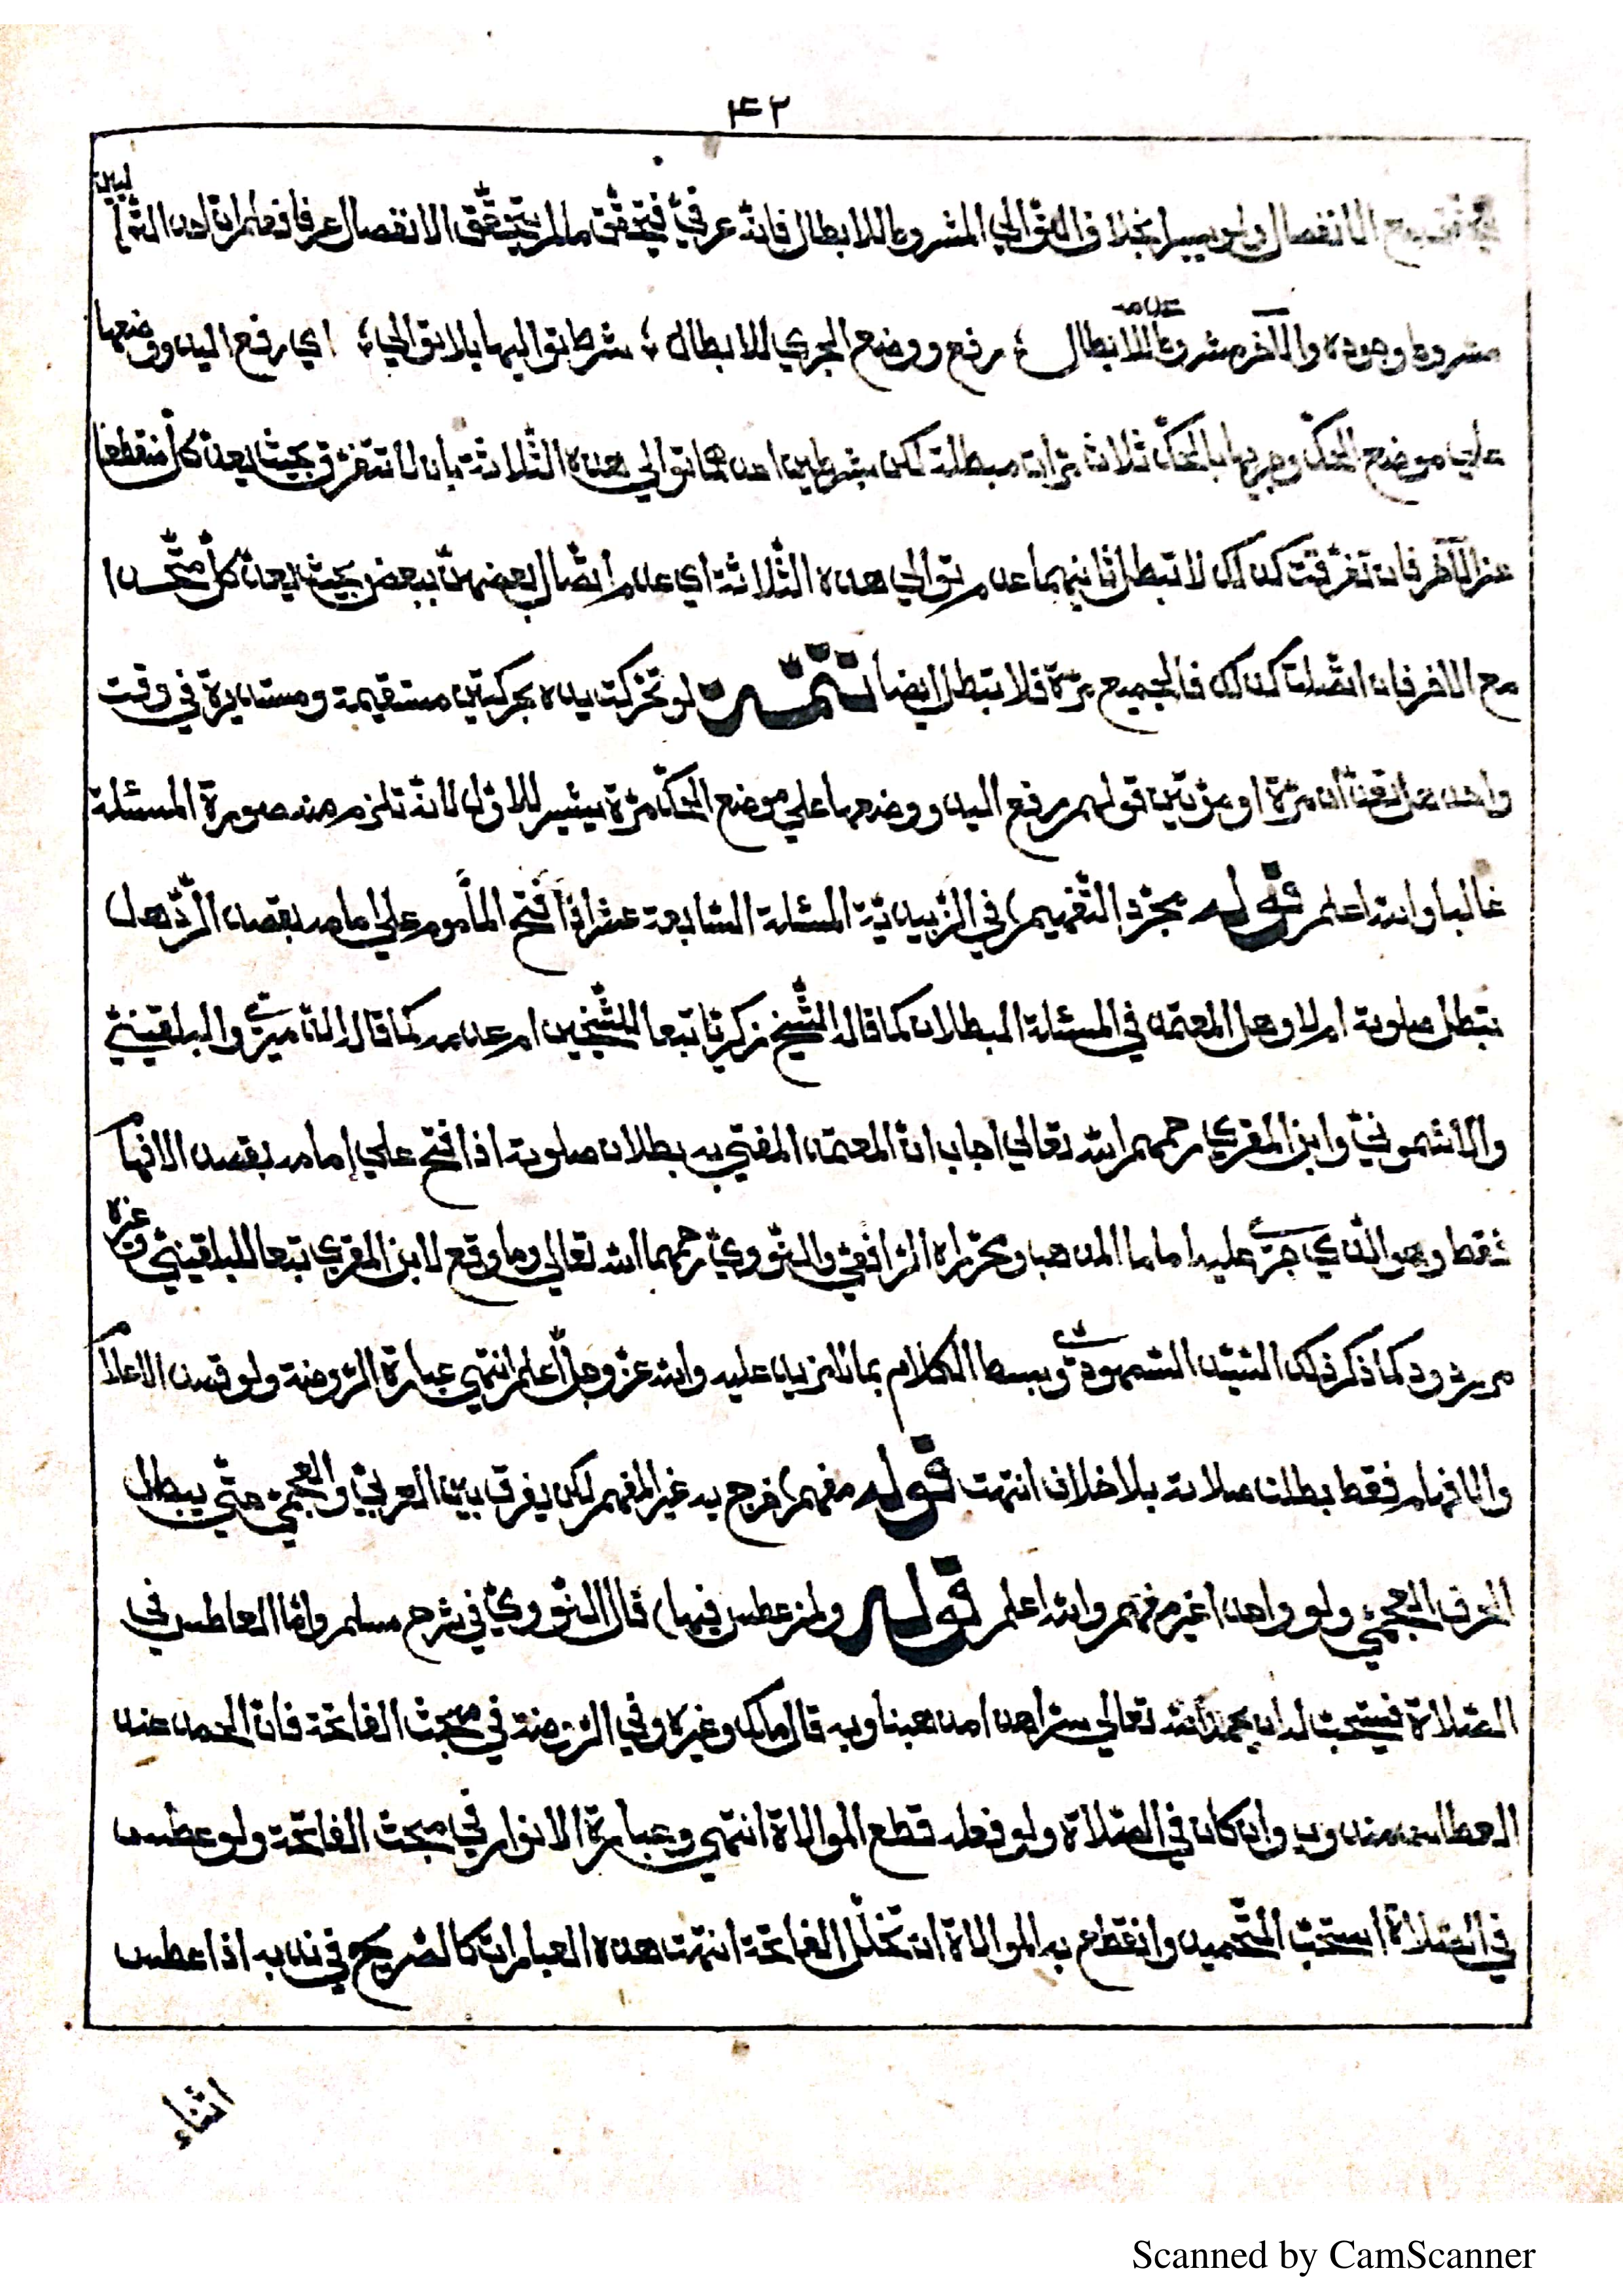 ٤٢
الانفصال ولو يسيرا بخلاف التوالي المشروط للابطال فانه عرفي فيتحقق ما لم يتحقق الانفصال عرفا فعلم ان احد التوا
ليين
مشروط وجوده والآخر مشروط عدمه للابطال ؛ رفع ووضع الجري للابطال ؛ شرط بتواليها بلا توالي ؛ اي رفع اليد ووضعها
علي موضع الحك وجريها بالحك ثلاث مرات مبطلة لكن بشرطين احدهما توالي هذه الثلاثة بان لا تتفرق بحيث يعد كل منقطعا
عن الآخر فان تفرقت كذلك لا تبطل ثانيهما عدم توالي هذه الثلاثة اي عدم اتصال بعضهن ببعض بحيث يعد كل متحدا
مع الاخر فان اتصلت كذلك فالجميع مرة فلا تبطل ايضا تتمه لو تحركت يده بحركتين مستقيمة ومستديرة في وقت
واحد هل تعدان مرة او مرتين قولهم رفع اليد ووضعها علي موضع الحك مرة يشير للاول لانه تلزم منه صورة المسئلة
غالبا والله اعلم قوله بمجرد التفهيم) في الزبيدية المسئلة السابعة عشر اذا فتح المأموم علي امامه بقصد الرد هل
تبطل صلوته ام لا وهل المعتمد في المسئلة البطلان كما قاله الشيخ زكريا تبعا للشيخين ام عدمه كما قاله الدميري والبلقيني
والاشموني وابن المقري رحمهم الله تعالي اجاب ان المعتمد المفتي به بطلان صلوته اذا فتح علي إمامه بقصد الافها م
فقط وهو الذي جري عليه اماما المذهب ومحرراه الرافعي والنووي رحمهما الله تعالي وما وقع لابن المقري تبعا للبلقيني وغيره
مردود كما ذكر ذلك السيد السمهودي وبسط الكلام بما لا مزيد عليه والله عز وجل اعلم انتهي عبارة الروضة ولو قصد الاعلام
والافهام فقط بطلت صلاته بلا خلاف انتهت قوله مفهم) خرج به غير المفهم لكن يفرق بين العربي والعجمي حتي يبطل
الحرف العجمي ولو واحدا غير مفهم والله اعلم قوله ولمن عطس فيها) قال النووي في شرح مسلم واما العاطس في
الصلاة فيستحب له ان يحمد الله تعالي سرا هذا مذهبنا وبه قال مالك وغيره وفي الروضة في مبحث الفاتحة فان الحمد عند
العطاس مندوب وان كان في الصلاة ولو فعله قطع الموالاة انتهي وعبارة الانوار في مبحث الفاتحة ولو عطس
في الصلاة استحب التحميد وانقطع به الموالاة ان تخلل الفاتحة انتهت هذه العبارات كالصريح في ندبه اذا عطس
اثناء
Scanned by CamScanner